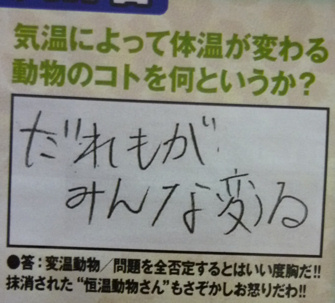 気温によって体温が変わる
動物のコトを何というか?
だれもが
みんな変る
●答:変温動物/問題を全否定するとはいい度胸だ!!
抹消された“恒温動物さん”もさぞかしお怒りだわ!!